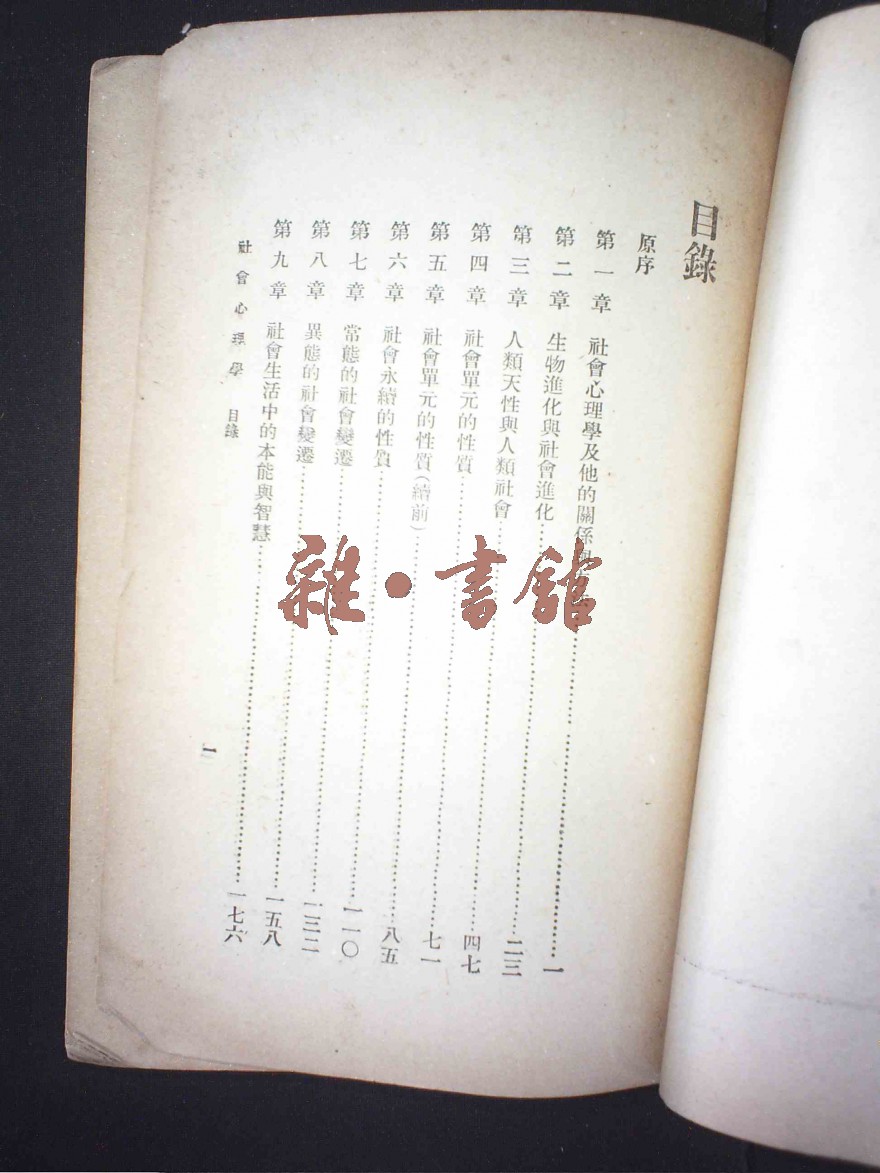 目錄
原序
第一章 社會心理學及他的關係與……一
第二章 生物進化與社會進化……二三
第三章 人類天性與人類社會……四七
第四章 社會單元的性質……七一
第五章 社會單元的性質(續前)……八五
第六章 社會永續的性質……一一〇
第七章 常態的社會變遷……一三二
第八章 異態的社會變遷……一五八
第九章 社會生活中的本能與智慧……一七六
社會心理學 目錄
一
雜·書館